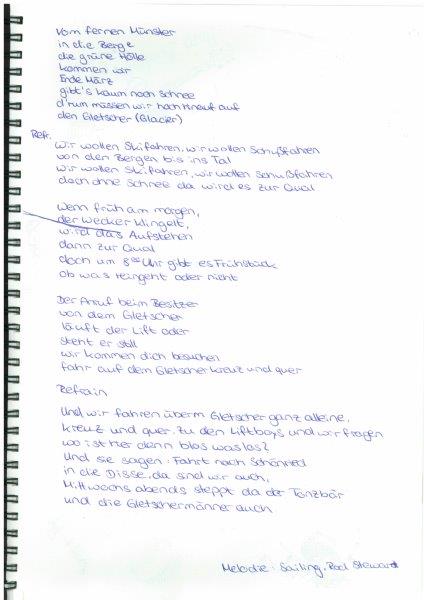 Vom fernen Münster
in die Berge
die grüne Hölle
kommen wir
Ende März
gibt's kaum noch Schnee
d'rum müssen wir hoch hinauf auf
den Gletscher (Glacier)
Refr.
Wir wollen Skifahren, wir wollen Schußfahren
von den Bergen bis ins Tal
wir wollen Skifahren, wir wollen Schußfahren
doch ohne Schnee da wird es zur Qual
Wenn früh am morgen,
der Wecker klingelt,
wird das Aufstehen
dann zur Qual
doch um 8 Uhr gibt es Frühstück
ob was reingeht oder nicht
Der Anruf beim Besitzer
von dem Gletscher
läuft der Lift oder
steht er still
wir kommen dich besuchen
fahr auf dem Gletscher kreuz und quer
Refrain
Und wir fahren überm Gletscher ganz alleine,
kreuz und quer zu den Liftboys und wir fragen
wo ist hier denn blos was los?
Und sie sagen: Fahrt nach Schönried
in die Disse, da sind wir auch,
Mittwochs abends steppt da der Tanzbär
und die Gletschermänner auch
Melodie: Sailing, Rod Steward